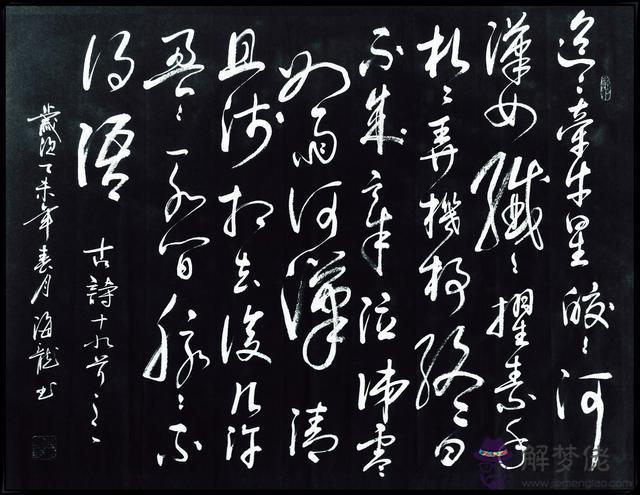 迢〻牽牛星皎〻河
漢女纖〻擢素手
札〻弄機杼終日
不成章泣涕零
如雨河漢清
且淺相去復几許
盈〻一水間脈〻不
得語
古詩十九首之一
歲次乙未年春月海龍書
解梦佬
www.jiemenglao.com